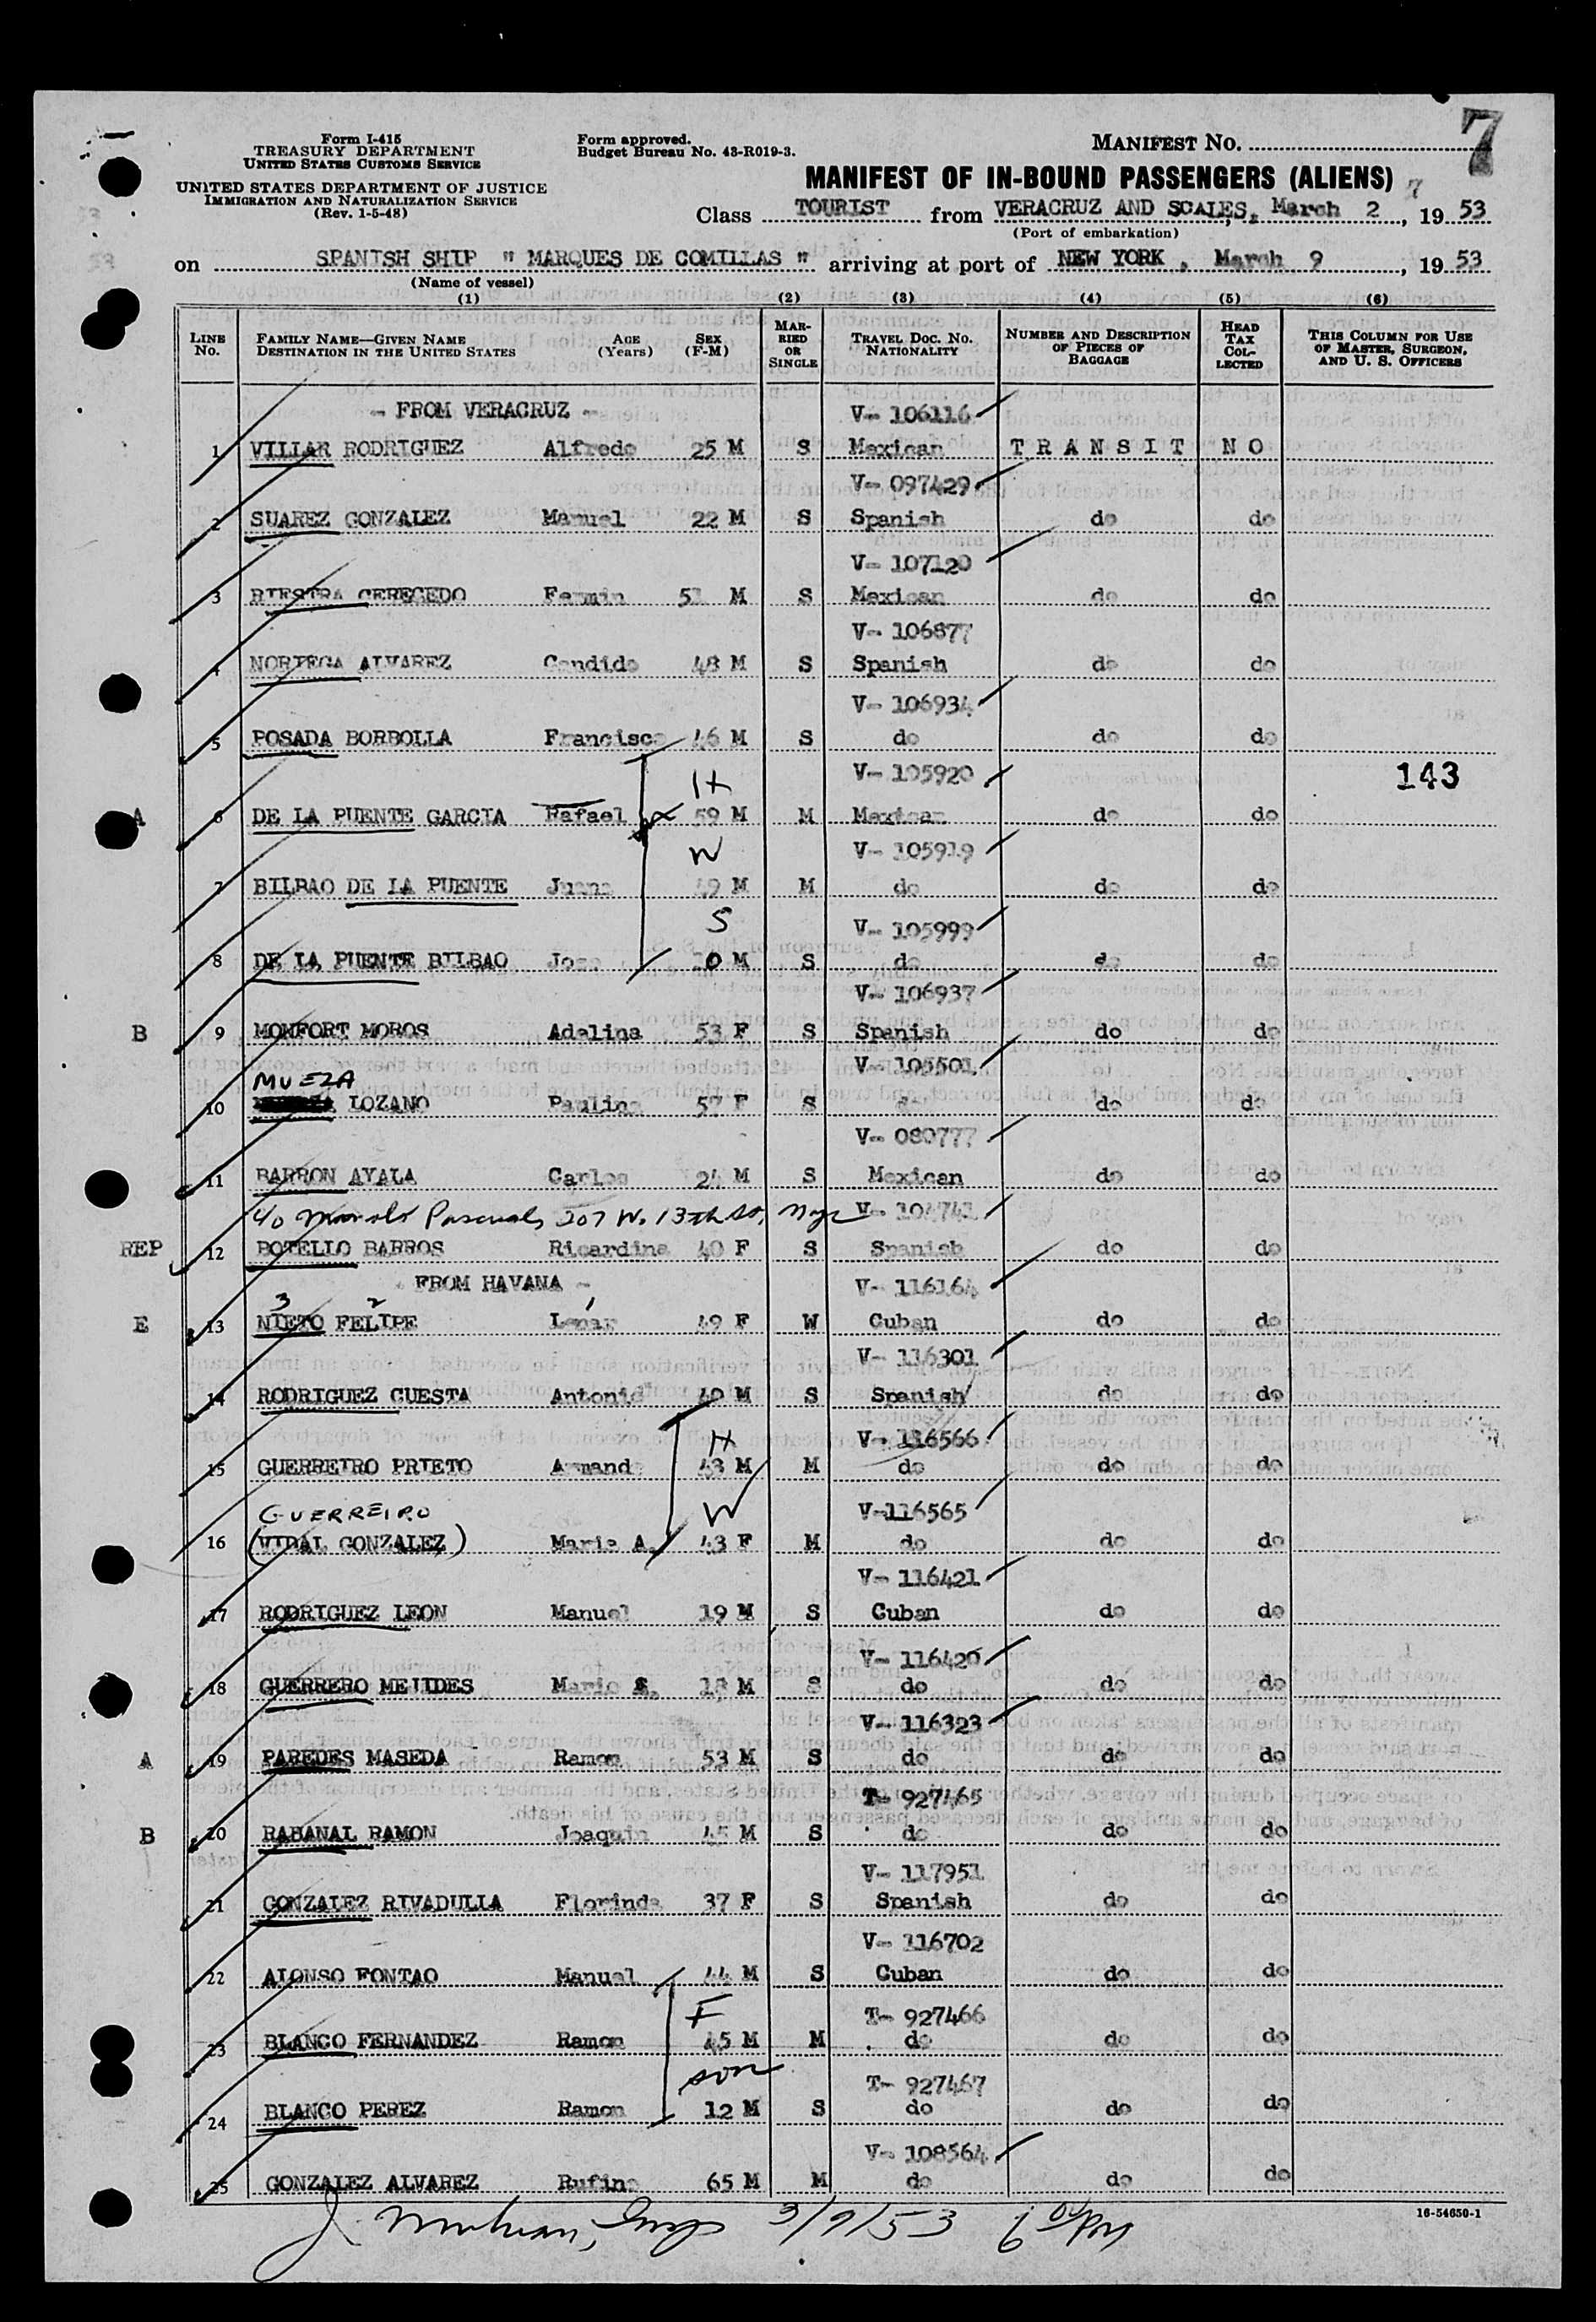 Form I-415
TREASURY DEPARTMENT
UNITED STATES CUSTOMS SERVICE
UNITED STATES DEPARTMENT OF JUSTICE
IMMIGRATION AND NATURALIZATION SERVICE
(Rev. 1-5-48)
Form approved.
Budget Bureau No. 43-R019-3.
MANIFEST No. 7
MANIFEST OF IN-BOUND PASSENGERS (ALIENS)
7
Class TOURIST from VERACRUZ AND SCALES, March 2, 19 53
(Port of embarkation)
on SPANISH SHIP " MARQUES DE COMILLAS " arriving at port of NEW YORK, March 9, 19 53
(Name of vessel)
(1) (2) (3) (4) (5) (6)
LINE No. FAMILY NAME—GIVEN NAME DESTINATION IN THE UNITED STATES AGE (Years) SEX (F-M) MARRIED OR SINGLE TRAVEL DOC. NO. NATIONALITY NUMBER AND DESCRIPTION OF PIECES OF BAGGAGE HEAD TAX COLLECTED THIS COLUMN FOR USE OF MASTER, SURGEON, AND U. S. OFFICERS
- FROM VERACRUZ - V- 106116
1 VILLAR RODRIGUEZ Alfredo 25 M S Mexican TRANSIT NO
V- 097429
2 SUAREZ GONZALEZ Manuel 22 M S Spanish do do
V- 107120
3 RIESTRA CERECEDO Fermin 51 M S Mexican do do
V- 106877
4 NORIEGA ALVAREZ Candido 48 M S Spanish do do
V- 106934
5 POSADA BORBOLLA Francisco 46 M S do do do
H V- 105920 143
A 6 DE LA PUENTE GARCIA Rafael 59 M M Mexican do do
W V- 105919
7 BILBAO DE LA PUENTE Juana 49 M M do do do
S V- 105999
8 DE LA PUENTE BILBAO Jose 20 M S do do do
V- 106937
B 9 MONFORT MOROS Adelina 53 F S Spanish do do
MUEZA V- 105501
10 LOZANO Paulina 57 F S do do do
V- 080777
11 BARRON AYALA Carlos 24 M S Mexican do do
c/o Manolo Pascual, 207 W. 13th St, NYC V- 104741
REP 12 BOTELLO BARROS Ricardina 40 F S Spanish do do
- FROM HAVANA - V- 116164
3 2 1
E 13 NIETO FELIPE 49 F W Cuban do do
V- 116301
14 RODRIGUEZ CUESTA Antonio 40 M S Spanish do do
H V- 116566
15 GUERREIRO PRIETO Armando 43 M M do do do
GUERREIRO W V-116565
16 (VIDAL GONZALEZ) Maria A. 43 F M do do do
V- 116421
17 RODRIGUEZ LEON Manuel 19 M S Cuban do do
V- 116420
18 GUERRERO MEJIDES Mario S. 18 M S do do do
V- 116323
A 19 PAREDES MASEDA Ramon 53 M S do do do
T- 927465
B 20 RABANAL RAMON Joaquin 45 M S do do do
V- 117951
21 GONZALEZ RIVADULLA Florinda 37 F S Spanish do do
V- 116702
22 ALONSO FONTAO Manuel 44 M S Cuban do do
F T- 927466
23 BLANCO FERNANDEZ Ramon 45 M M do do do
son T- 927467
24 BLANCO PEREZ Ramon 12 M S do do do
V- 108564
25 GONZALEZ ALVAREZ Rufino 65 M M do do do
16-54650-1
3/9/53 6 00 PM